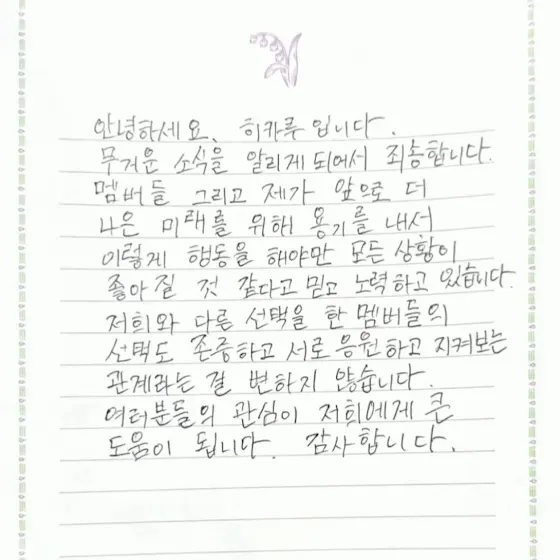 안녕하세요. 히카루 입니다.
무거운 소식을 알리게 되어서 죄송합니다.
멤버들 그리고 제가 앞으로 더
나은 미래를 위해 용기를 내서
이렇게 행동을 해야만 모든 상황이
좋아 질 것 같다고 믿고 노력하고 있습니다.
저희와 다른 선택을 한 멤버들의
선택도 존중하고 서로 응원하고 지켜보는
관계라는 걸 변하지 않습니다.
여러분들의 관심이 저희에게 큰
도움이 됩니다. 감사합니다.